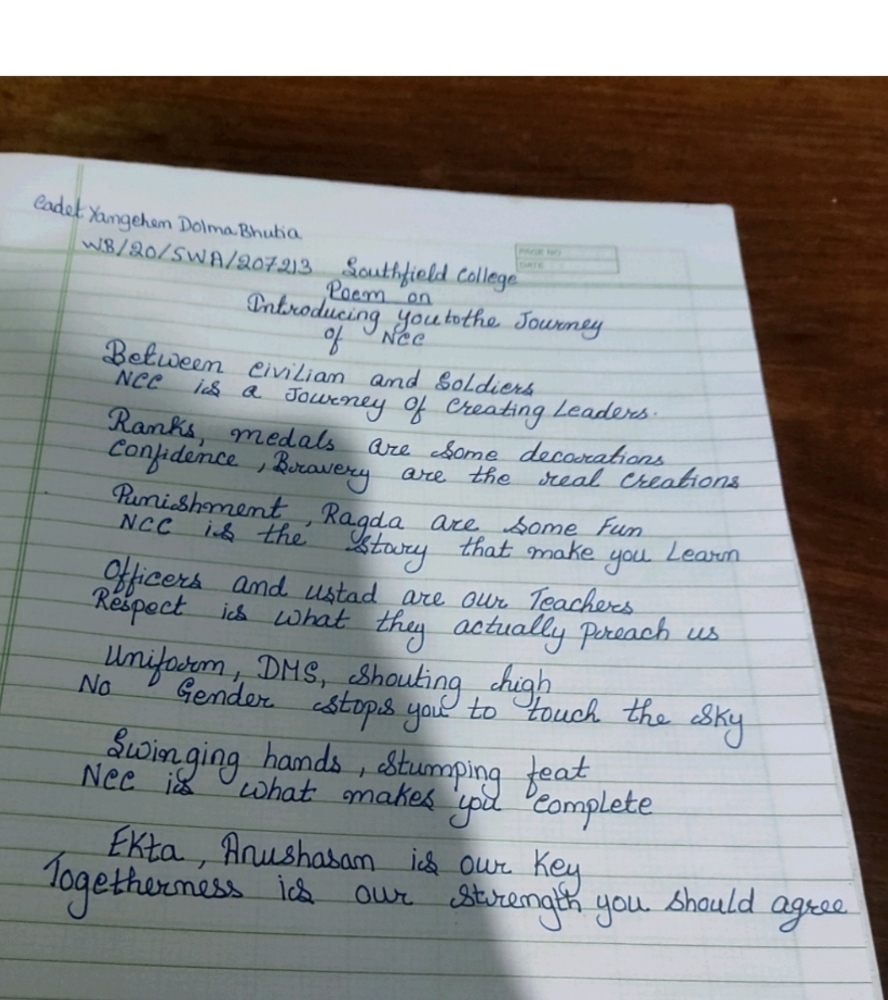 Cadet Yangchen Dolma Bhutia
WB/20/SWA/207213 Southfield College
PAGE NO
DATE
Poem on
Introducing you to the Journey
of NCC
Between civilian and Soldiers
NCC is a Journey of Creating Leaders.
Ranks, medals are some decorations
Confidence, Bravery are the real Creations
Punishment, Ragda are some Fun
NCC is the Story that make you Learn
Officers and ustad are our Teachers
Respect is what they actually preach us
Uniform, DMS, Shouting high
No Gender stops you to touch the Sky
Swinging hands, Stumping feat
NCC is what makes you complete
Ekta, Anushasam is our Key
Togetherness is our Strength you should agree